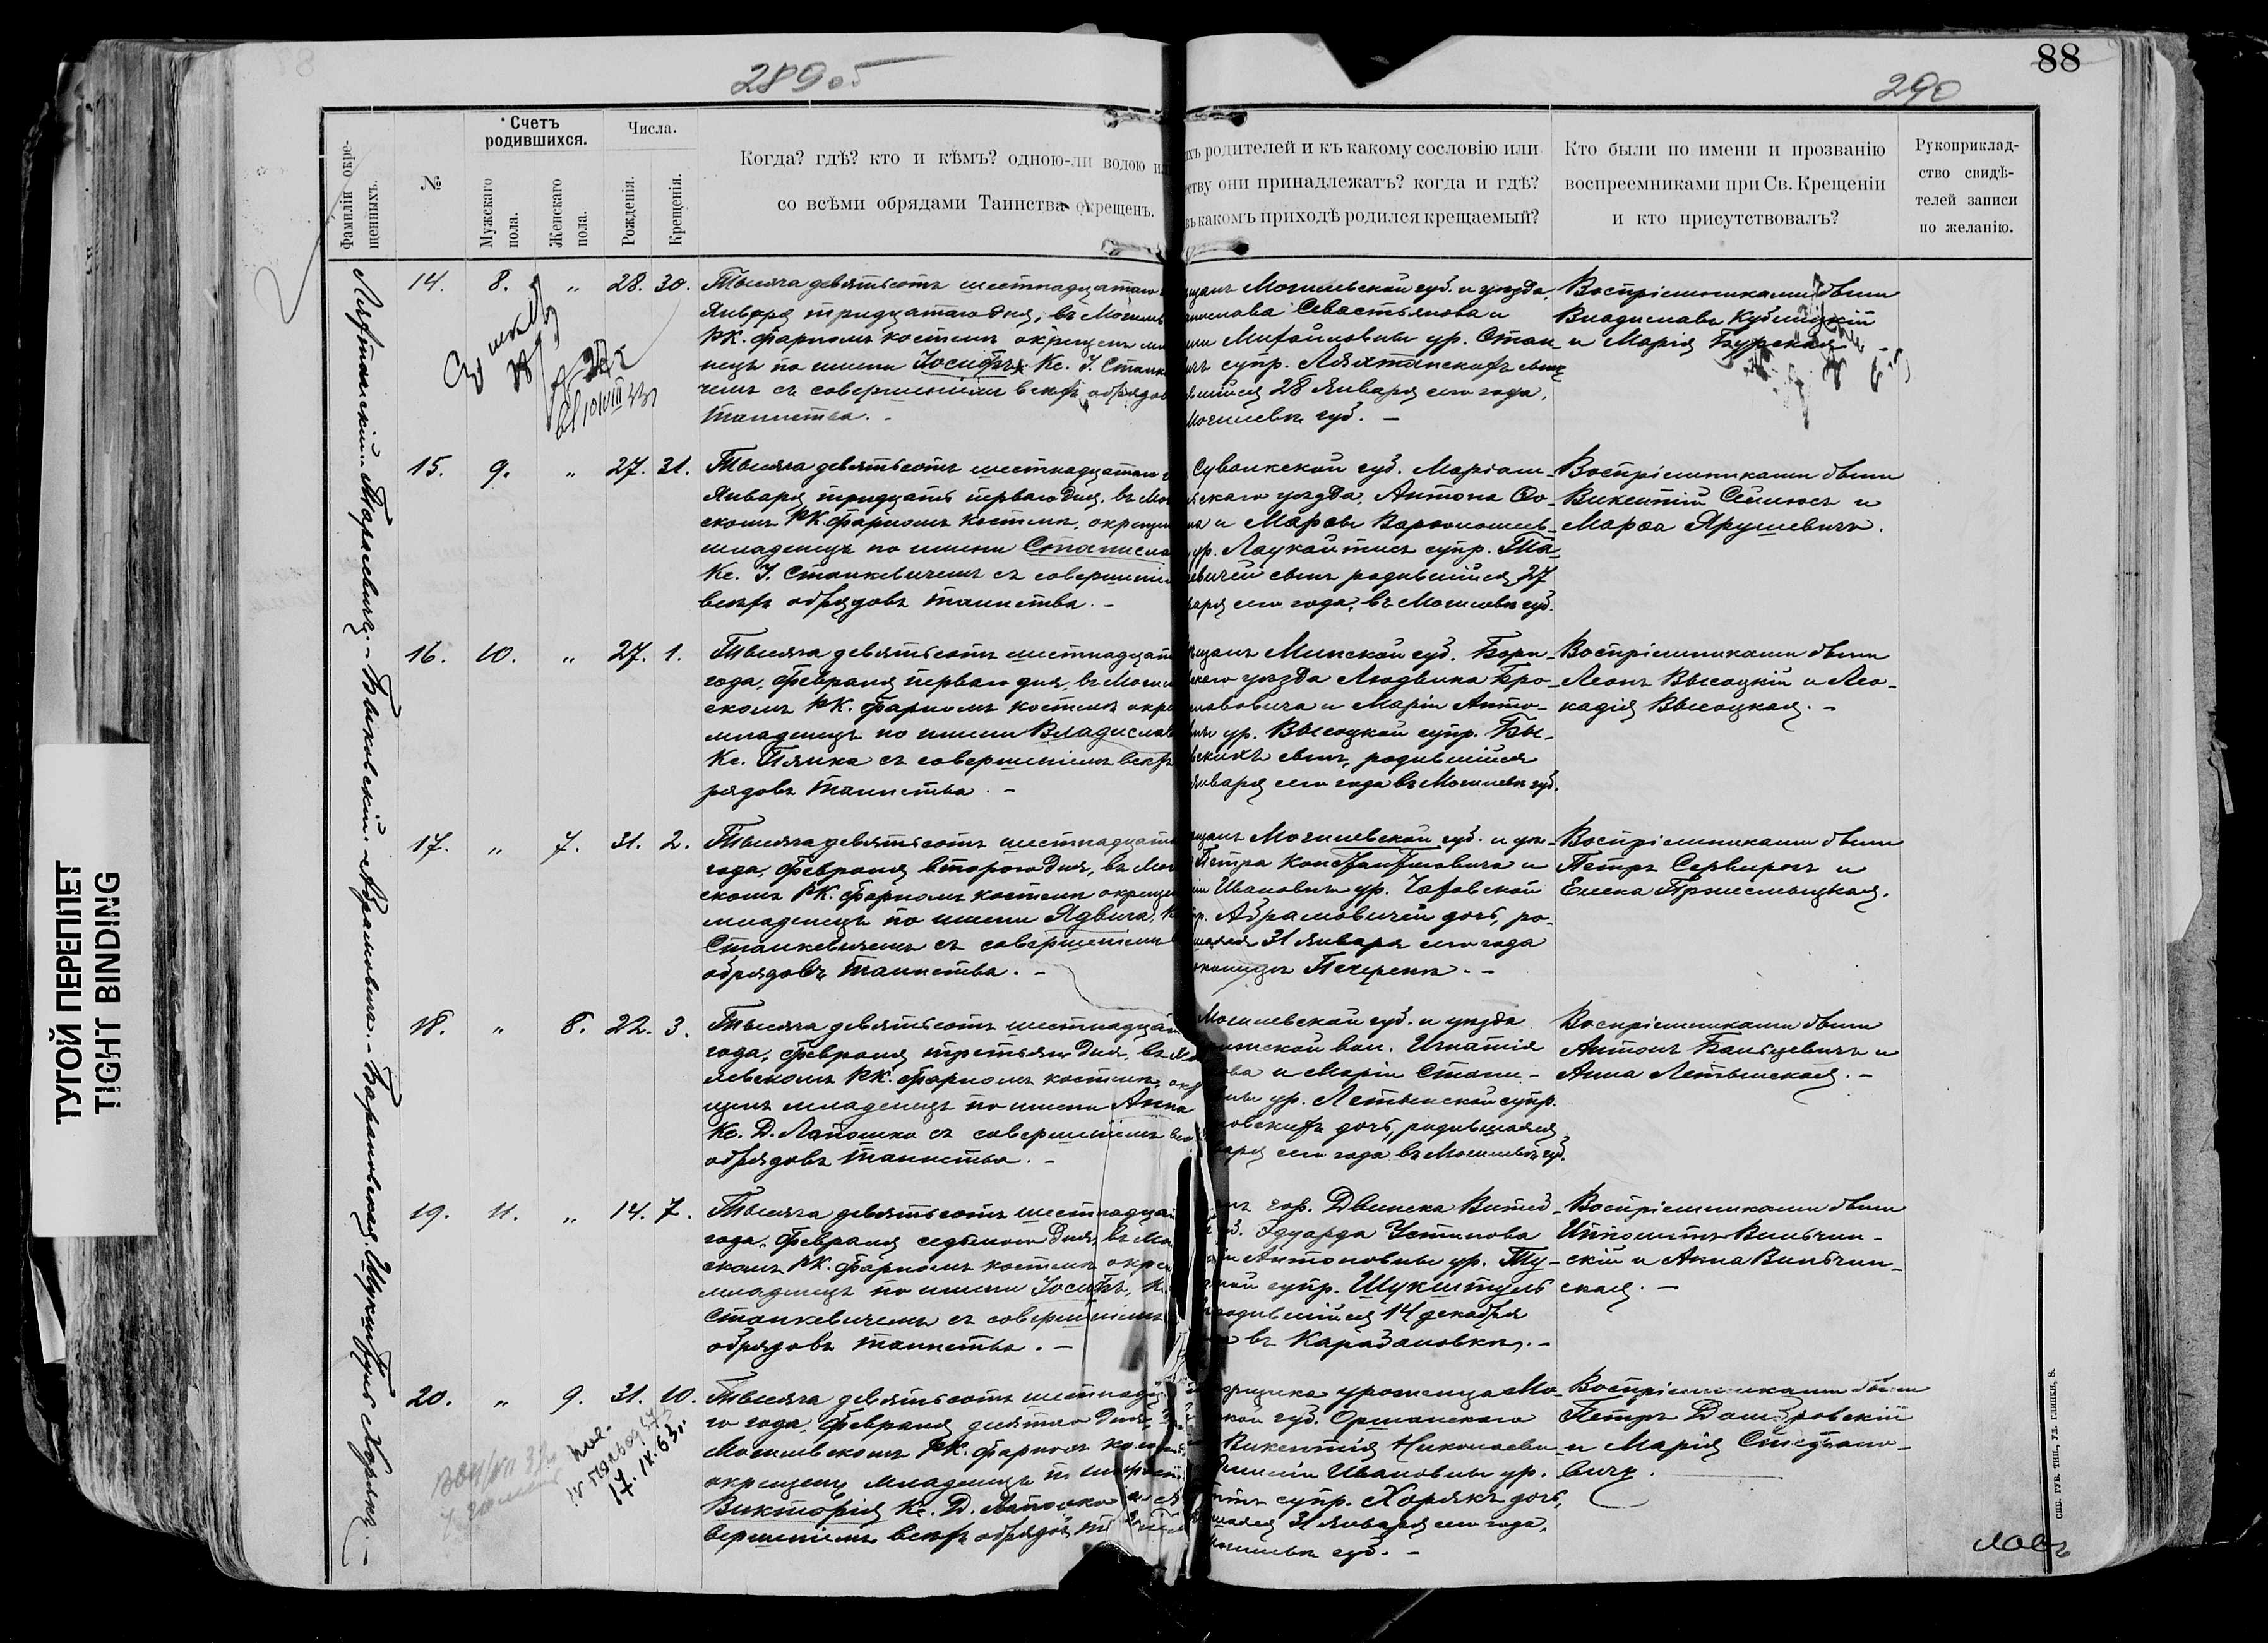 88
289 об
290
Фамиліи окре-
щенныхъ.
№
Счетъ
родившихся.
Мужскаго
пола.
Женскаго
пола.
Числа.
Рожденія.
Крещенія.
Когда? гдѣ? кто и кѣмъ? одною-ли водою ил
со всѣми обрядами Таинства окрещенъ.
ихъ родителей и къ какому сословію или
ству они принадлежатъ? когда и гдѣ?
въ какомъ приходѣ родился крещаемый?
Кто были по имени и прозванію
воспреемниками при Св. Крещеніи
и кто присутствовалъ?
Рукоприклад-
ство свидѣ-
телей записи
по желанію.
14. 8. „ 28. 30.
Тысяча девятьсотъ шестнадцатаго
Января тридцатаго дня, въ Могилев
РК. фарномъ костелѣ окрещенъ мла
нецъ по имени Іосифъ Кс. І. Станке
чемъ съ совершеніемъ всѣхъ обрядов
таинства. -
щанъ Могилевской губ. и уѣзда,
нислава Севастьянова и
Михайловны ур. Стан
супр. Ляхтанскихъ сынъ
вшійся 28 Января сего года,
Могилевѣ губ. -
Воспріемниками были
Владиславъ Кублицкій
и Марія Бурская -
15. 9. „ 27. 31.
Тысяча девятьсотъ шестнадцатаго г
Января тридцать перваго дня, въ Мог
скомъ РК. фарномъ костелѣ, окрещен
младенецъ по имени Станислав
Кс. І. Станкевичемъ съ совершеніем
всѣхъ обрядовъ таинства. -
Сувалкской губ. Маріам-
скаго уѣзда, Антона Ѳо-
на и Марѳы Варѳоломеев-
ур. Лаукайтисъ супр. Та-
евичей сынъ родившійся 27
варя сего года, въ Могилевѣ губ.
Воспріемниками были
Викентій и
Марѳа Ярушевичъ.
16. 10. „ 27. 1.
Тысяча девятьсотъ шестнадцат
года, Февраля перваго дня, въ Могил
скомъ РК. фарномъ костелѣ окре
младенецъ по имени Владислав
Кс. съ совершеніемъ всѣхъ
рядовъ таинства. -
щанъ Минской губ. Бори-
скаго уѣзда Людвика Бро-
лавовича и Маріи Анто-
ны ур. Высоцкой супр. Бы-
скихъ сынъ, родившійся
января сего года въ Могилевѣ губ.
Воспріемниками были
Леонъ Высоцкій и Лео-
кадія Высоцкая. -
17. „ 7. 31. 2.
Тысяча девятьсотъ шестнадцата
года, Февраля второго дня, въ Мог
скомъ РК. фарномъ костелѣ окрещен
младенецъ по имени Ядвига, К
Станкевичемъ съ совершеніемъ
обрядовъ таинства. -
щанъ Могилевской губ. и уѣ-
Петра Константиновича и
Ивановны ур. Чаховской
пр. Абрамовичей дочь, ро-
шаяся 31 Января сего года
околицѣ Печерскѣ. -
Воспріемниками были
Петръ и
Елена
18. „ 8. 22. 3.
Тысяча девятьсотъ шестнадцат
года, Февраля третьяго дня, въ Мо
левскомъ РК. фарномъ костелѣ, окр
щенъ младенецъ по имени Анна
Кс. Д. Лапошко съ совершеніемъ вс
обрядовъ таинства. -
Могилевской губ. и уѣзда
вол. Игнатія
ова и Маріи Стани-
ны ур. Летынской супр.
новскихъ дочь, родившаяся
варя сего года въ Могилевѣ губ.
Воспріемниками были
Антонъ Бальцевичъ и
Анна Летынская. -
19. 11. „ 14. 7.
Тысяча девятьсотъ шестнадцат
года, Февраля седьмого дня, въ Мог
скомъ РК. фарномъ костелѣ окре
младенецъ по имени Іосифъ, К
Станкевичемъ съ совершеніемъ
обрядовъ таинства. -
гор. Двинска Витеб-
Эдуарда Устинова
Антоновны ур. Ту-
супр. Шукштуль
родившійся 14 декабря
въ Карабановкѣ. -
Воспріемниками были
Ипполитъ Вильчин-
скій и Анна Вильчин-
ская. -
20. „ 9. 31. 10.
Тысяча девятьсотъ шестнадц
го года, Февраля десятаго дня,
Могилевскомъ РК. фарномъ кост
окрещенъ младенецъ по имени
Викторія Кс. Д. Лапошко съ со
вершеніемъ всѣхъ обрядовъ т
уроженца Мо-
ской губ. Оршанскаго
Викентія Николаеви-
Ивановны ур.
супр. Хорякъ дочь,
шаяся 31 Января сего года,
Могилевѣ губ. -
Воспріемниками были
Петръ Домбровскій
и Марія Стефано-
вичъ.
Ляхтанскій.- Тарасевичъ.- Быковскій.- Абрамовичъ.- Барановская. Шукштуль. Хорякъ. -
17.IV.63г.
ТУГОЙ ПЕРЕПЛЕТ
TIGHT BINDING
СПБ. ГУБ. ТИП., УЛ. ГЛИНКИ, 8.